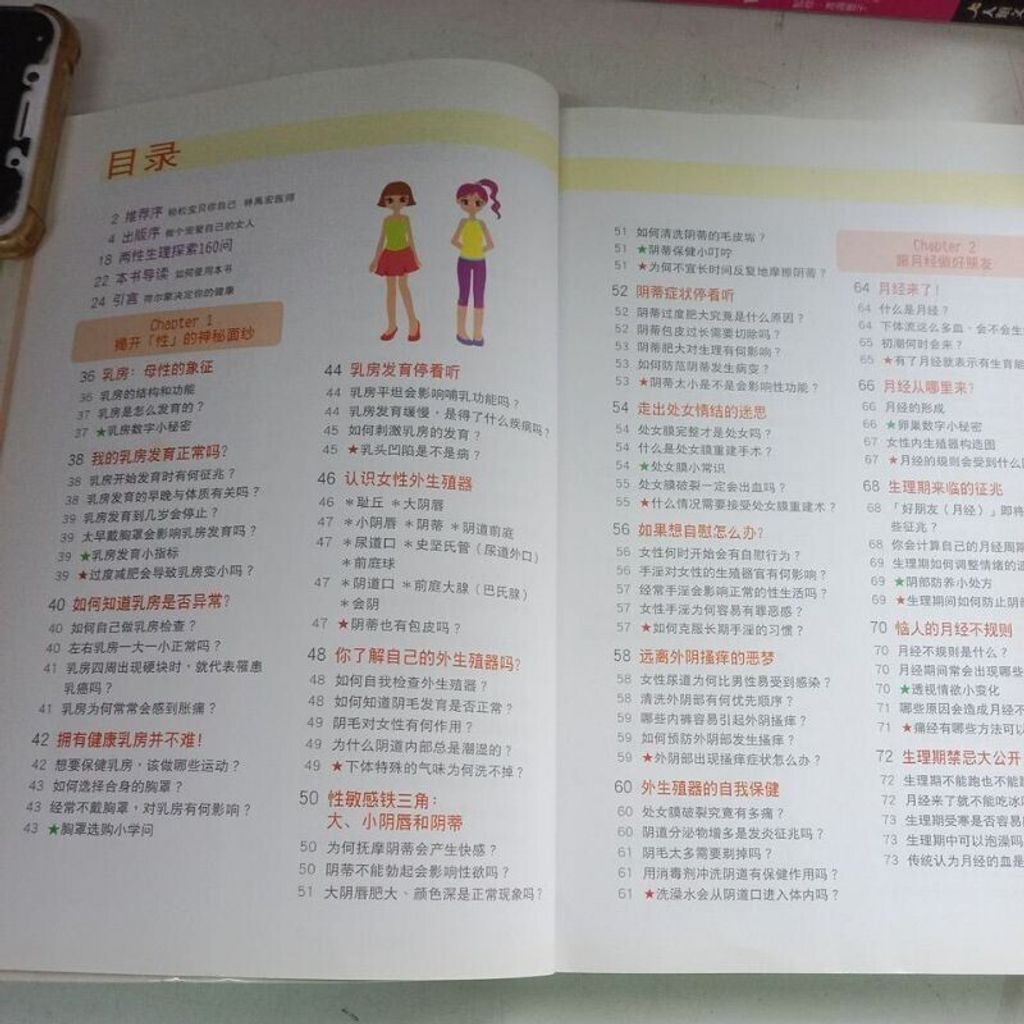 目录
2 推荐序 轻松宝贝你自己 钟禹宏医师
4 出版序 做个宠爱自己的女人
18 两性生理探索160问
22 本书导读 如何使用本书
24 引言 荷尔蒙决定你的健康
Chapter 1
揭开「性」的神秘面纱
36 乳房：母性的象征
36 乳房的结构和功能
37 乳房是怎么发育的？
37 ★乳房数字小秘密
38 我的乳房发育正常吗？
38 乳房开始发育时有何征兆？
38 乳房发育的早晚与体质有关吗？
39 乳房发育到几岁会停止？
39 太早戴胸罩会影响乳房发育吗？
39 ★乳房发育小指标
39 ★过度减肥会导致乳房变小吗？
40 如何知道乳房是否异常？
40 如何自己做乳房检查？
40 左右乳房一大一小正常吗？
41 乳房四周出现硬块时，就代表罹患
乳癌吗？
41 乳房为何常常会感到胀痛？
42 拥有健康乳房并不难！
42 想要保健乳房，该做哪些运动？
43 如何选择合身的胸罩？
43 经常不戴胸罩，对乳房有何影响？
43 ★胸罩选购小学问
44 乳房发育停看听
44 乳房平坦会影响哺乳功能吗？
44 乳房发育缓慢，是得了什么疾病吗？
45 如何刺激乳房的发育？
45 ★乳头凹陷是不是病？
46 认识女性外生殖器
46 ＊耻丘 ＊大阴唇
47 ＊小阴唇 ＊阴蒂 ＊阴道前庭
47 ＊尿道口 ＊史坚氏管（尿道外口）
＊前庭球
47 ＊阴道口 ＊前庭大腺（巴氏腺）
＊会阴
47 ★阴蒂也有包皮吗？
48 你了解自己的外生殖器吗？
48 如何自我检查外生殖器？
48 如何知道阴毛发育是否正常？
49 阴毛对女性有何作用？
49 为什么阴道内部总是潮湿的？
49 ★下体特殊的气味为何洗不掉？
50 性敏感铁三角：
大、小阴唇和阴蒂
50 为何抚摩阴蒂会产生快感？
50 阴蒂不能勃起会影响性欲吗？
51 大阴唇肥大、颜色深是正常现象吗？
51 如何清洗阴蒂的毛皮垢？
51 ★阴蒂保健小叮咛
51 ★为何不宜长时间反复地摩擦阴蒂？
52 阴蒂症状停看听
52 阴蒂过度肥大究竟是什么原因？
52 阴蒂包皮过长需要切除吗？
53 阴蒂肥大对生理有何影响？
53 如何防范阴蒂发生病变？
53 ★阴蒂太小是不是会影响性功能？
54 走出处女情结的迷思
54 处女膜完整才是处女吗？
54 什么是处女膜重建手术？
54 ★处女膜小常识
55 处女膜破裂一定会出血吗？
55 ★什么情况需要接受处女膜重建术？
56 如果想自慰怎么办？
56 女性何时开始会有自慰行为？
56 手淫对女性的生殖器官有何影响？
57 经常手淫会影响正常的性生活吗？
57 女性手淫为何容易有罪恶感？
57 ★如何克服长期手淫的习惯？
58 远离外阴搔痒的恶梦
58 女性尿道为何比男性易受到感染？
58 清洗外阴部有何优先顺序？
59 哪些内裤容易引起外阴搔痒？
59 如何预防外阴部发生搔痒？
59 ★外阴部出现搔痒症状怎么办？
60 外生殖器的自我保健
60 处女膜破裂究竟有多痛？
60 阴道分泌物增多是发炎征兆吗？
61 阴毛太多需要剃掉吗？
61 用消毒剂冲洗阴道有保健作用吗？
61 ★洗澡水会从阴道口进入体内吗？
Chapter 2
跟月经做好朋友
64 月经来了！
64 什么是月经？
64 下体流这么多血，会不会生
65 初潮何时会来？
65 ★有了月经就表示有生育能
66 月经从哪里来？
66 月经的形成
66 ★卵巢数字小秘密
67 女性内生殖器构造图
67 ★月经的规则会受到什么
68 生理期来临的征兆
68 「好朋友（月经）」即将
些征兆？
68 你会计算自己的月经周期
69 生理期如何调整情绪的
69 ★阴部防养小处方
69 ★生理期间如何防止阴
70 恼人的月经不规则
70 月经不规则是什么？
70 月经期间常会出现哪些
70 ★透视情欲小变化
71 哪些原因会造成月经不
71 ★痛经有哪些方法可以
72 生理期禁忌大公开
72 生理期不能跑也不能
72 月经来了就不能吃冰
73 生理期受寒是否容易
73 生理期中可以泡澡吗
73 传统认为月经的血是